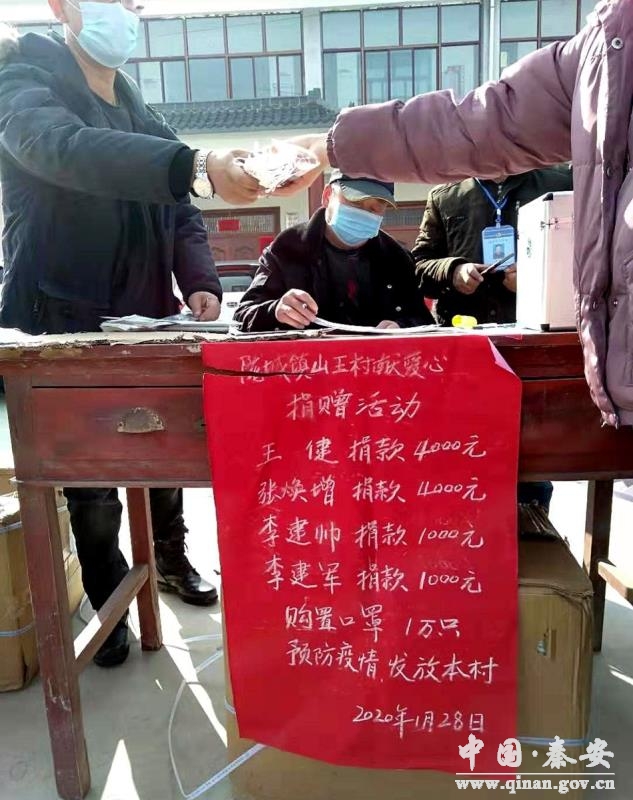 陇城镇山王村献爱心
捐赠活动
王 健 捐款 4000元
张焕增 捐款 4000元
李建帅 捐款 1000元
李建军 捐款 1000元
购置口罩 1万只
预防疫情,发放本村
2020年1月28日
中国·秦安
www.qinan.gov.cn